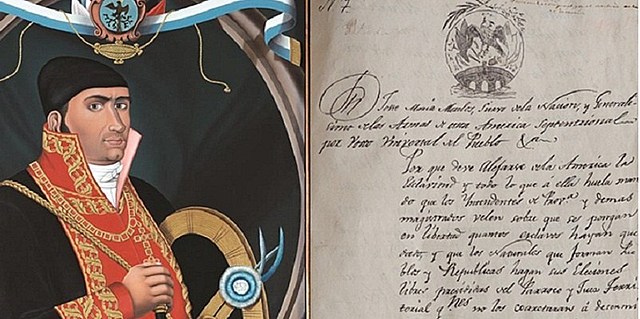 N 7
Dn Jose María Morelos, Siervo de la Nacion, y Generali-
simo de las Armas de esta America Septentrional
por Voto Universal del Pueblo &a
Por que deve Alejarse de la America la
Esclavitud y todo lo que a ella huela man
do que los Yntendentes de Prova y demas
magistrados velen sobre que se pongan
en libertad quantos esclavos hayan que
dado, y que los Naturales que forman Pue
blos y Republicas hagan sus Elecciones
libres presididas del Parroco y Juez Terri
torial qnes no los coartaran á determi